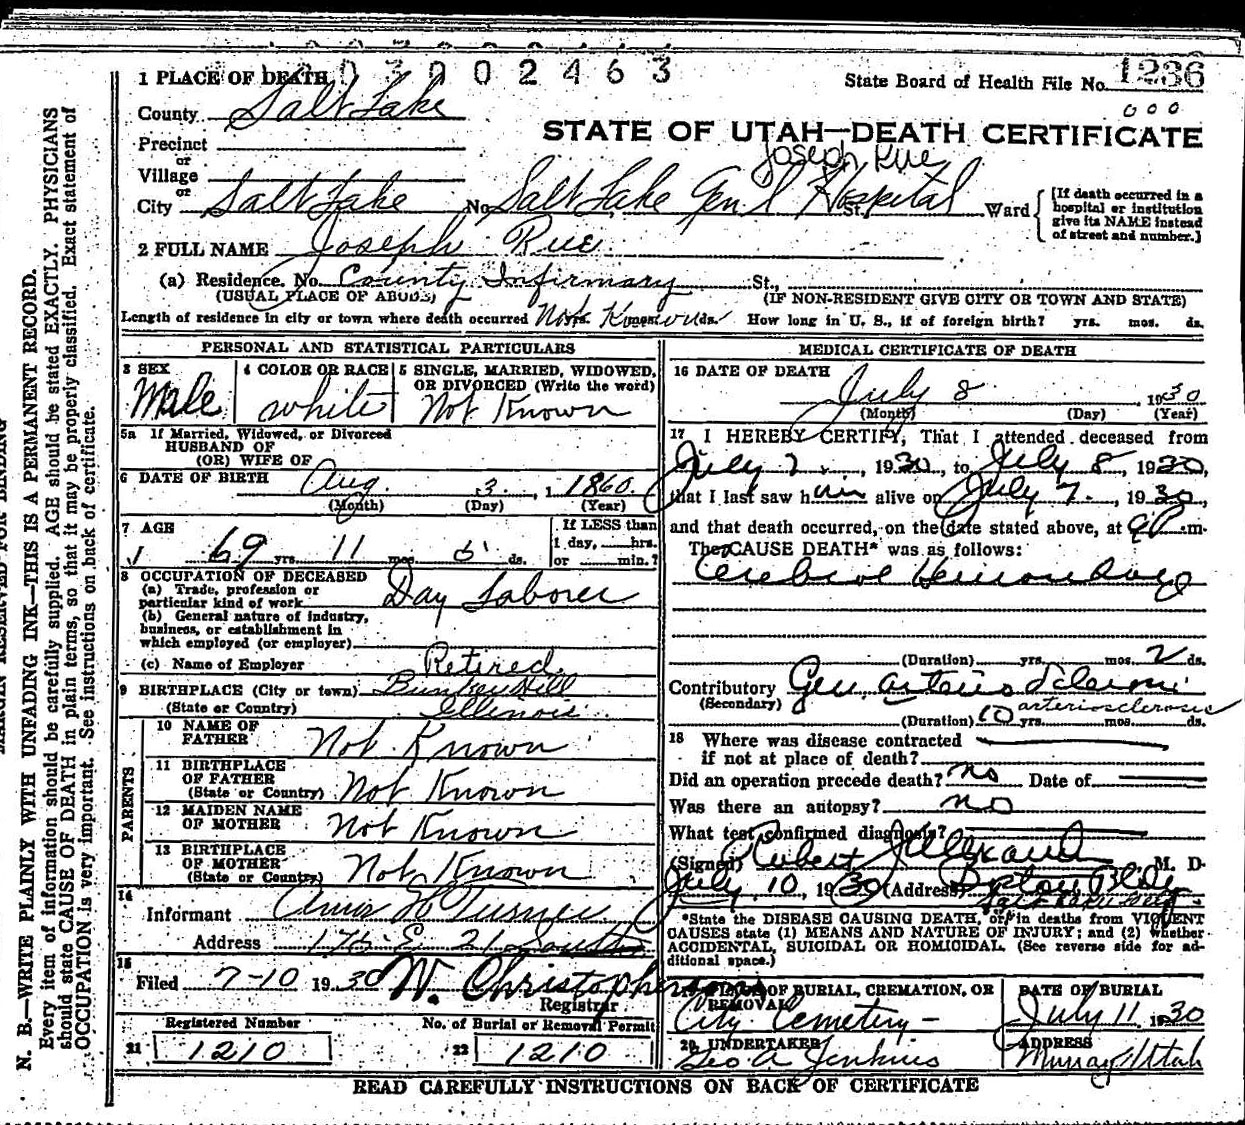 0 3 0 0 0 2 4 6 3
1 PLACE OF DEATH
State Board of Health File No. 1236
County Salt Lake
000
STATE OF UTAH—DEATH CERTIFICATE
Precinct
Joseph Rue
or
Village
or
City Salt Lake No. Salt Lake Gen'l Hospital St., Ward
[If death occurred in a
hospital or institution
give its NAME instead
of street and number.]
2 FULL NAME Joseph Rue
(a) Residence. No. County Infirmary St.,
(USUAL PLACE OF ABODE) (IF NON-RESIDENT GIVE CITY OR TOWN AND STATE)
Length of residence in city or town where death occurred Not Known ds. How long in U. S., if of foreign birth? yrs. mos. ds.
PERSONAL AND STATISTICAL PARTICULARS
3 SEX Male
4 COLOR OR RACE white
5 SINGLE, MARRIED, WIDOWED,
OR DIVORCED (Write the word)
Not Known
5a If Married, Widowed, or Divorced
HUSBAND OF
(OR) WIFE OF
6 DATE OF BIRTH Aug. 3, 1860.
(Month) (Day) (Year)
7 AGE
69 yrs. 11 mos. 5 ds.
If LESS than
1 day, hrs.
or min.?
8 OCCUPATION OF DECEASED
(a) Trade, profession or
particular kind of work Day Laborer
(b) General nature of industry,
business, or establishment in
which employed (or employer)
(c) Name of Employer Retired
9 BIRTHPLACE (City or town) Bunker Hill
(State or Country) Illinois
PARENTS
10 NAME OF
FATHER Not Known
11 BIRTHPLACE
OF FATHER
(State or Country) Not Known
12 MAIDEN NAME
OF MOTHER Not Known
13 BIRTHPLACE
OF MOTHER
(State or Country) Not Known
14
Informant H Turner
Address E 21 South
15
Filed 7-10 1930 W. Christopherson
Registrar
Registered Number
21 1210
No. of Burial or Removal Permit
22 1210
MEDICAL CERTIFICATE OF DEATH
16 DATE OF DEATH
July 8, 1930
(Month) (Day) (Year)
17 I HEREBY CERTIFY, That I attended deceased from
July 7, 1930, to July 8, 1930,
that I last saw him alive on July 7, 1930,
and that death occurred, on the date stated above, at 9P m.
The CAUSE DEATH* was as follows:
Cerebral Hemorrhage
(Duration) yrs. mos. 2 ds.
Contributory Gen. arterio Sclerosis
(Secondary) arteriosclerosis
(Duration) 10 yrs. mos. ds.
18 Where was disease contracted
if not at place of death?
Did an operation precede death? no Date of
Was there an autopsy? no
What test confirmed diagnosis?
(Signed) M. D.
July 10, 1930 (Address) Bldg
*State the DISEASE CAUSING DEATH, or in deaths from VIOLENT
CAUSES state (1) MEANS AND NATURE OF INJURY; and (2) whether
ACCIDENTAL, SUICIDAL OR HOMICIDAL. (See reverse side for ad-
ditional space.)
OF BURIAL, CREMATION, OR
REMOVAL
City Cemetery
DATE OF BURIAL
July 11 1930
20 UNDERTAKER
Geo A Jenkins
ADDRESS
Murray Utah
READ CAREFULLY INSTRUCTIONS ON BACK OF CERTIFICATE
MARGIN RESERVED FOR BINDING
N. B.—WRITE PLAINLY WITH UNFADING INK—THIS IS A PERMANENT RECORD.
Every item of information should be carefully supplied. AGE should be stated EXACTLY. PHYSICIANS
should state CAUSE OF DEATH in plain terms, so that it may be properly classified. Exact statement of
OCCUPATION is very important. See instructions on back of certificate.